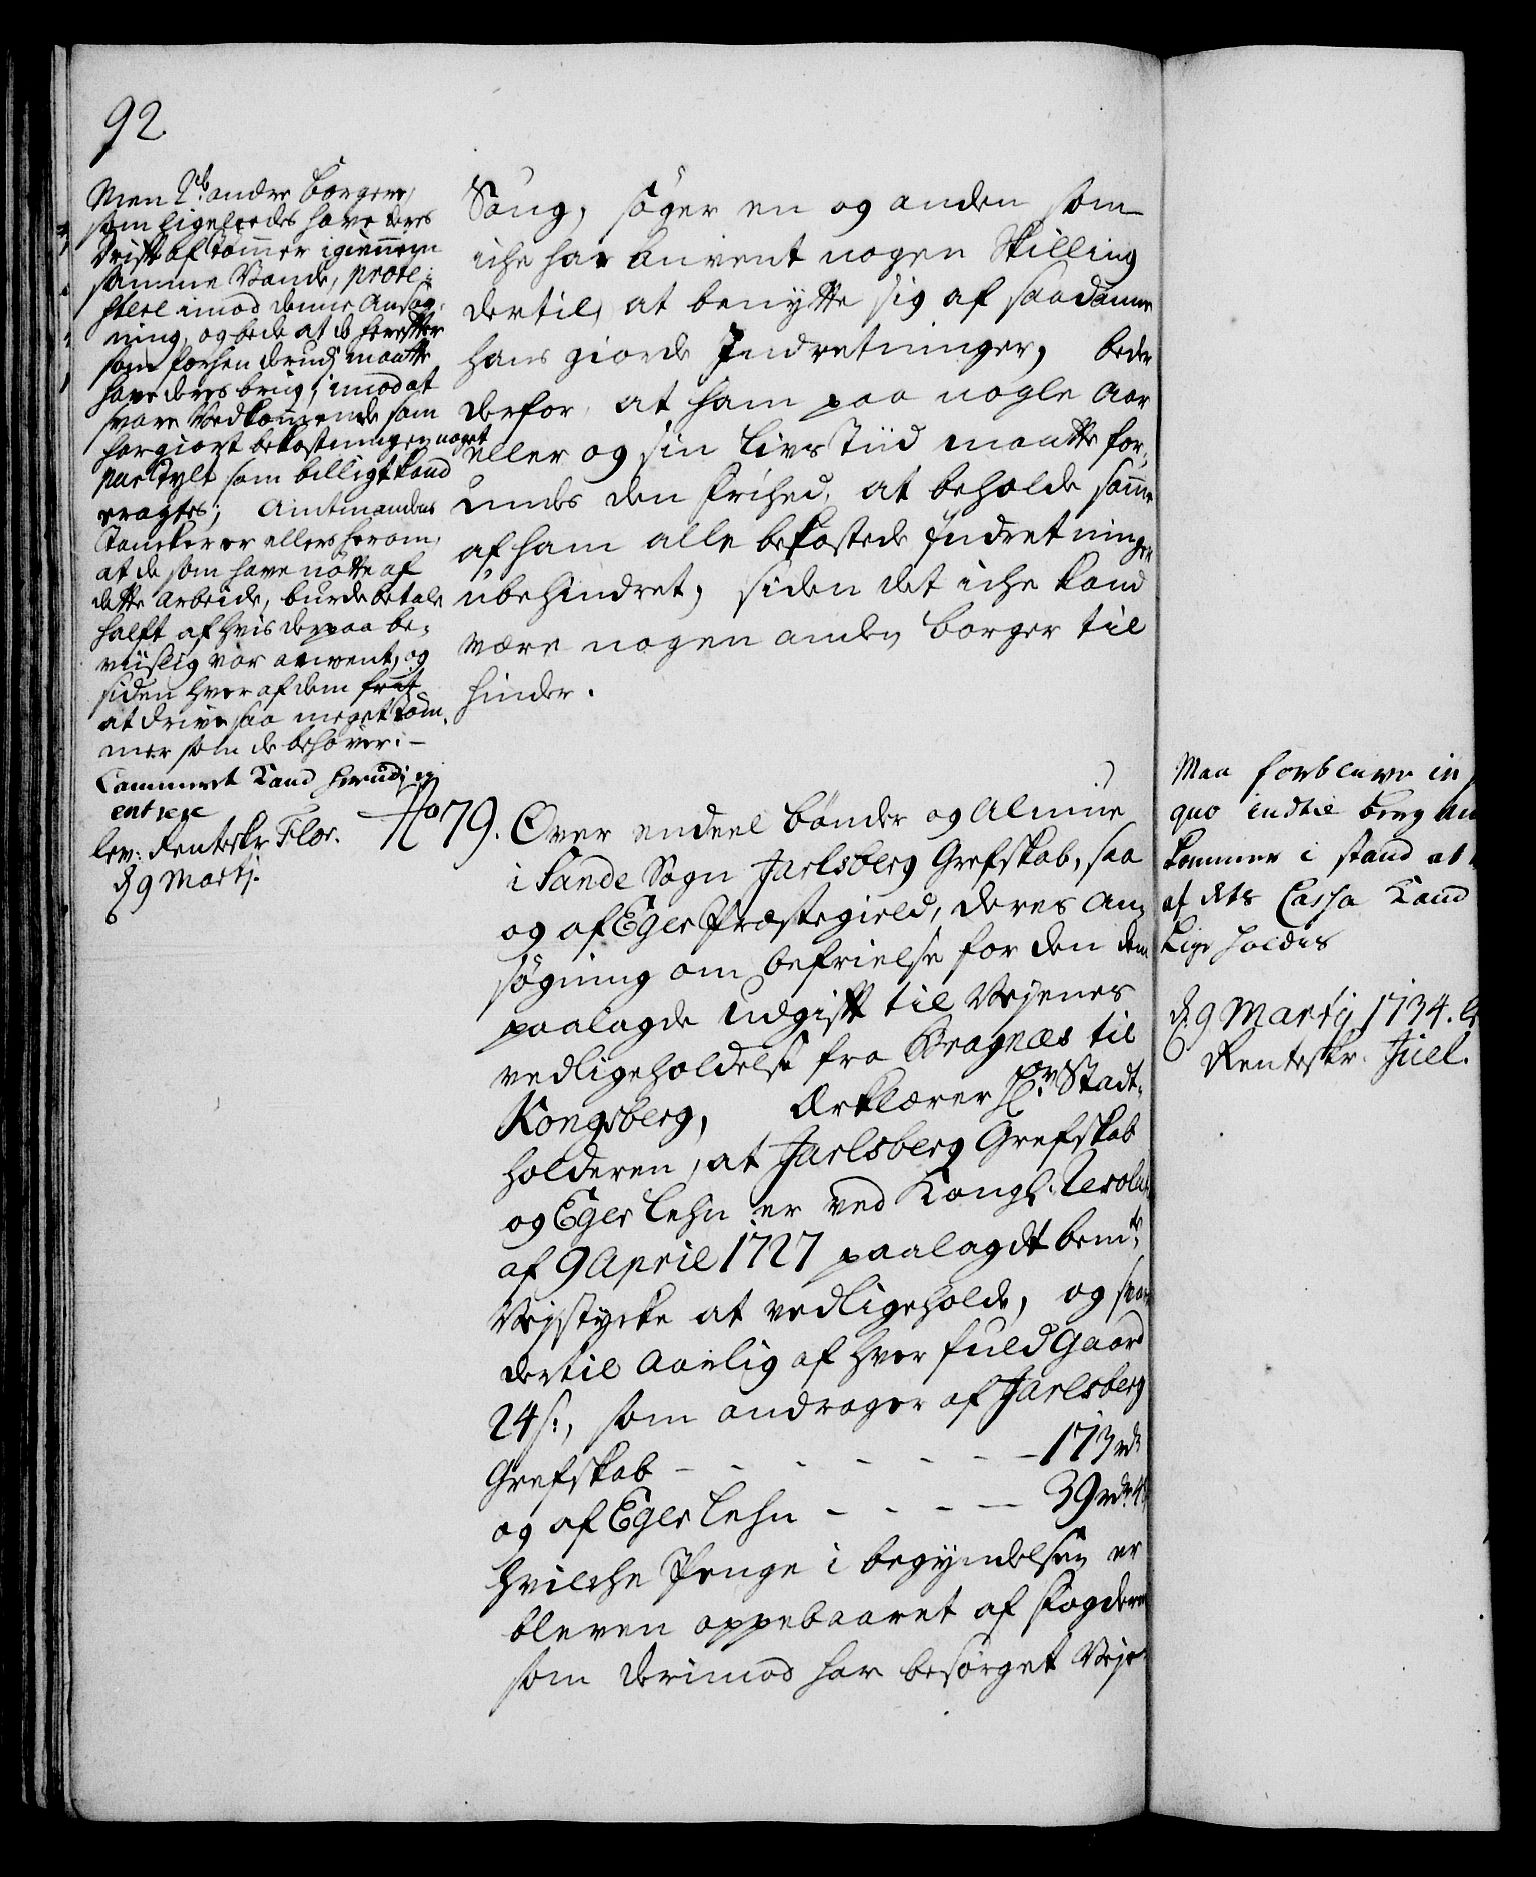 92.
Men 2de andre Borgere,
som ligeledes have deres
Drift af Tømmer igiennem
samme Vande, prote-
stere imod denne Ansøg-
ning, og bede at de herefter
som forhen derudj maatte
have deres brug, imod at
svare Vedkommende som
har giort bekostningen noget
pr Tylt som billigt kand
eragtes; Amtmandens
Tancker er ellers herom,
at de som have nøtte af
dette Arbeide, burde betale
halft af hvis derpaa be-
viislig var anvent, og
siden hver af dem frit
at drive saa meget Tøm-
mer som de behøver. -
Cammeret Kand herudj ej
entrere
lev: Renteskr. Flor.
d 9 Martj.
Saug, søger en og anden som
iche har anvent nogen Skilling
dertil, at benytte sig af saadanne
hans giorde Indretninger, beder
derfor, at ham paa nogle Aar
eller og sin Livs Tiid maatte for-
undes den frihed, at beholde samme
af ham alle bekostede Indretninger
ubehindret, siden det iche kand
være nogen anden borger til
hinder.
No 79. Over endeel bønder og Almue
i Sande Sogn Jarlsberg Grefskab, saa
og af Eger Præstegield, deres An-
søgning om befrielse for den dem
paalagde Udgift til Veyenes
vedligeholdelse fra Bragnæs til
Kongsberg, Erklærer Hr Stadt-
holderen, at Jarlsberg Grefskab
og Eger Lehn er ved Kongl. Resolut
af 9 April 1727 paalagdt bemte
Veystycke at vedligeholde, og svare
dertil Aarlig af hver fuld Gaard
24 s:, som andrager af Jarlsberg
Grefskab - - - - - - - 173 rdr
og af Eger Lehn - - - - - 39 rdr 4
hvilche Penge i begyndelsen er
bleven oppebaaret af fogderne
som derimod har besørget Veje-
Maa forblive in
quo indtil
kommer i stand at
af dets Cassa Kand
lige holdes
d. 9 Martij 1734.
Renteskr. Juel.